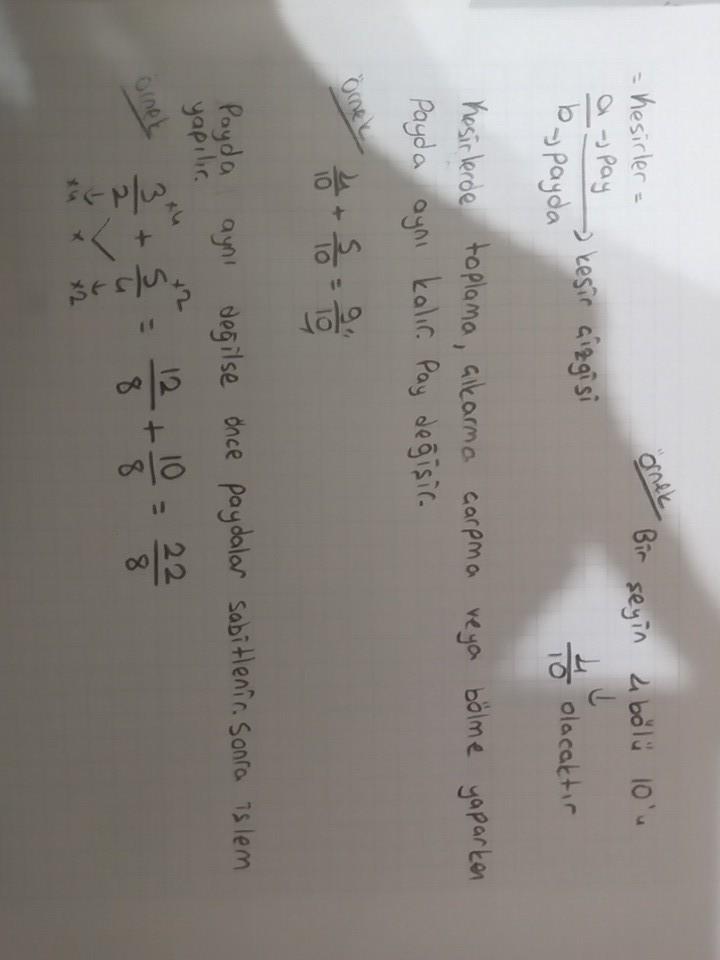 = Kesirler =
a → pay
b → payda
→ kesir çizgisi
Örnek Bir şeyin 4 bölü 10'u
↓
4/10 olacaktır
Kesirlerde toplama, çıkarma çarpma veya bölme yaparken
Payda aynı kalır. Pay değişir.
Örnek 4/10 + 5/10 = 9/10
Payda aynı değilse önce paydalar sabitlenir. Sonra işlem
yapılır.
Örnek 3/2 + 5/4 = 12/8 + 10/8 = 22/8
x4 x2
x4 x x2